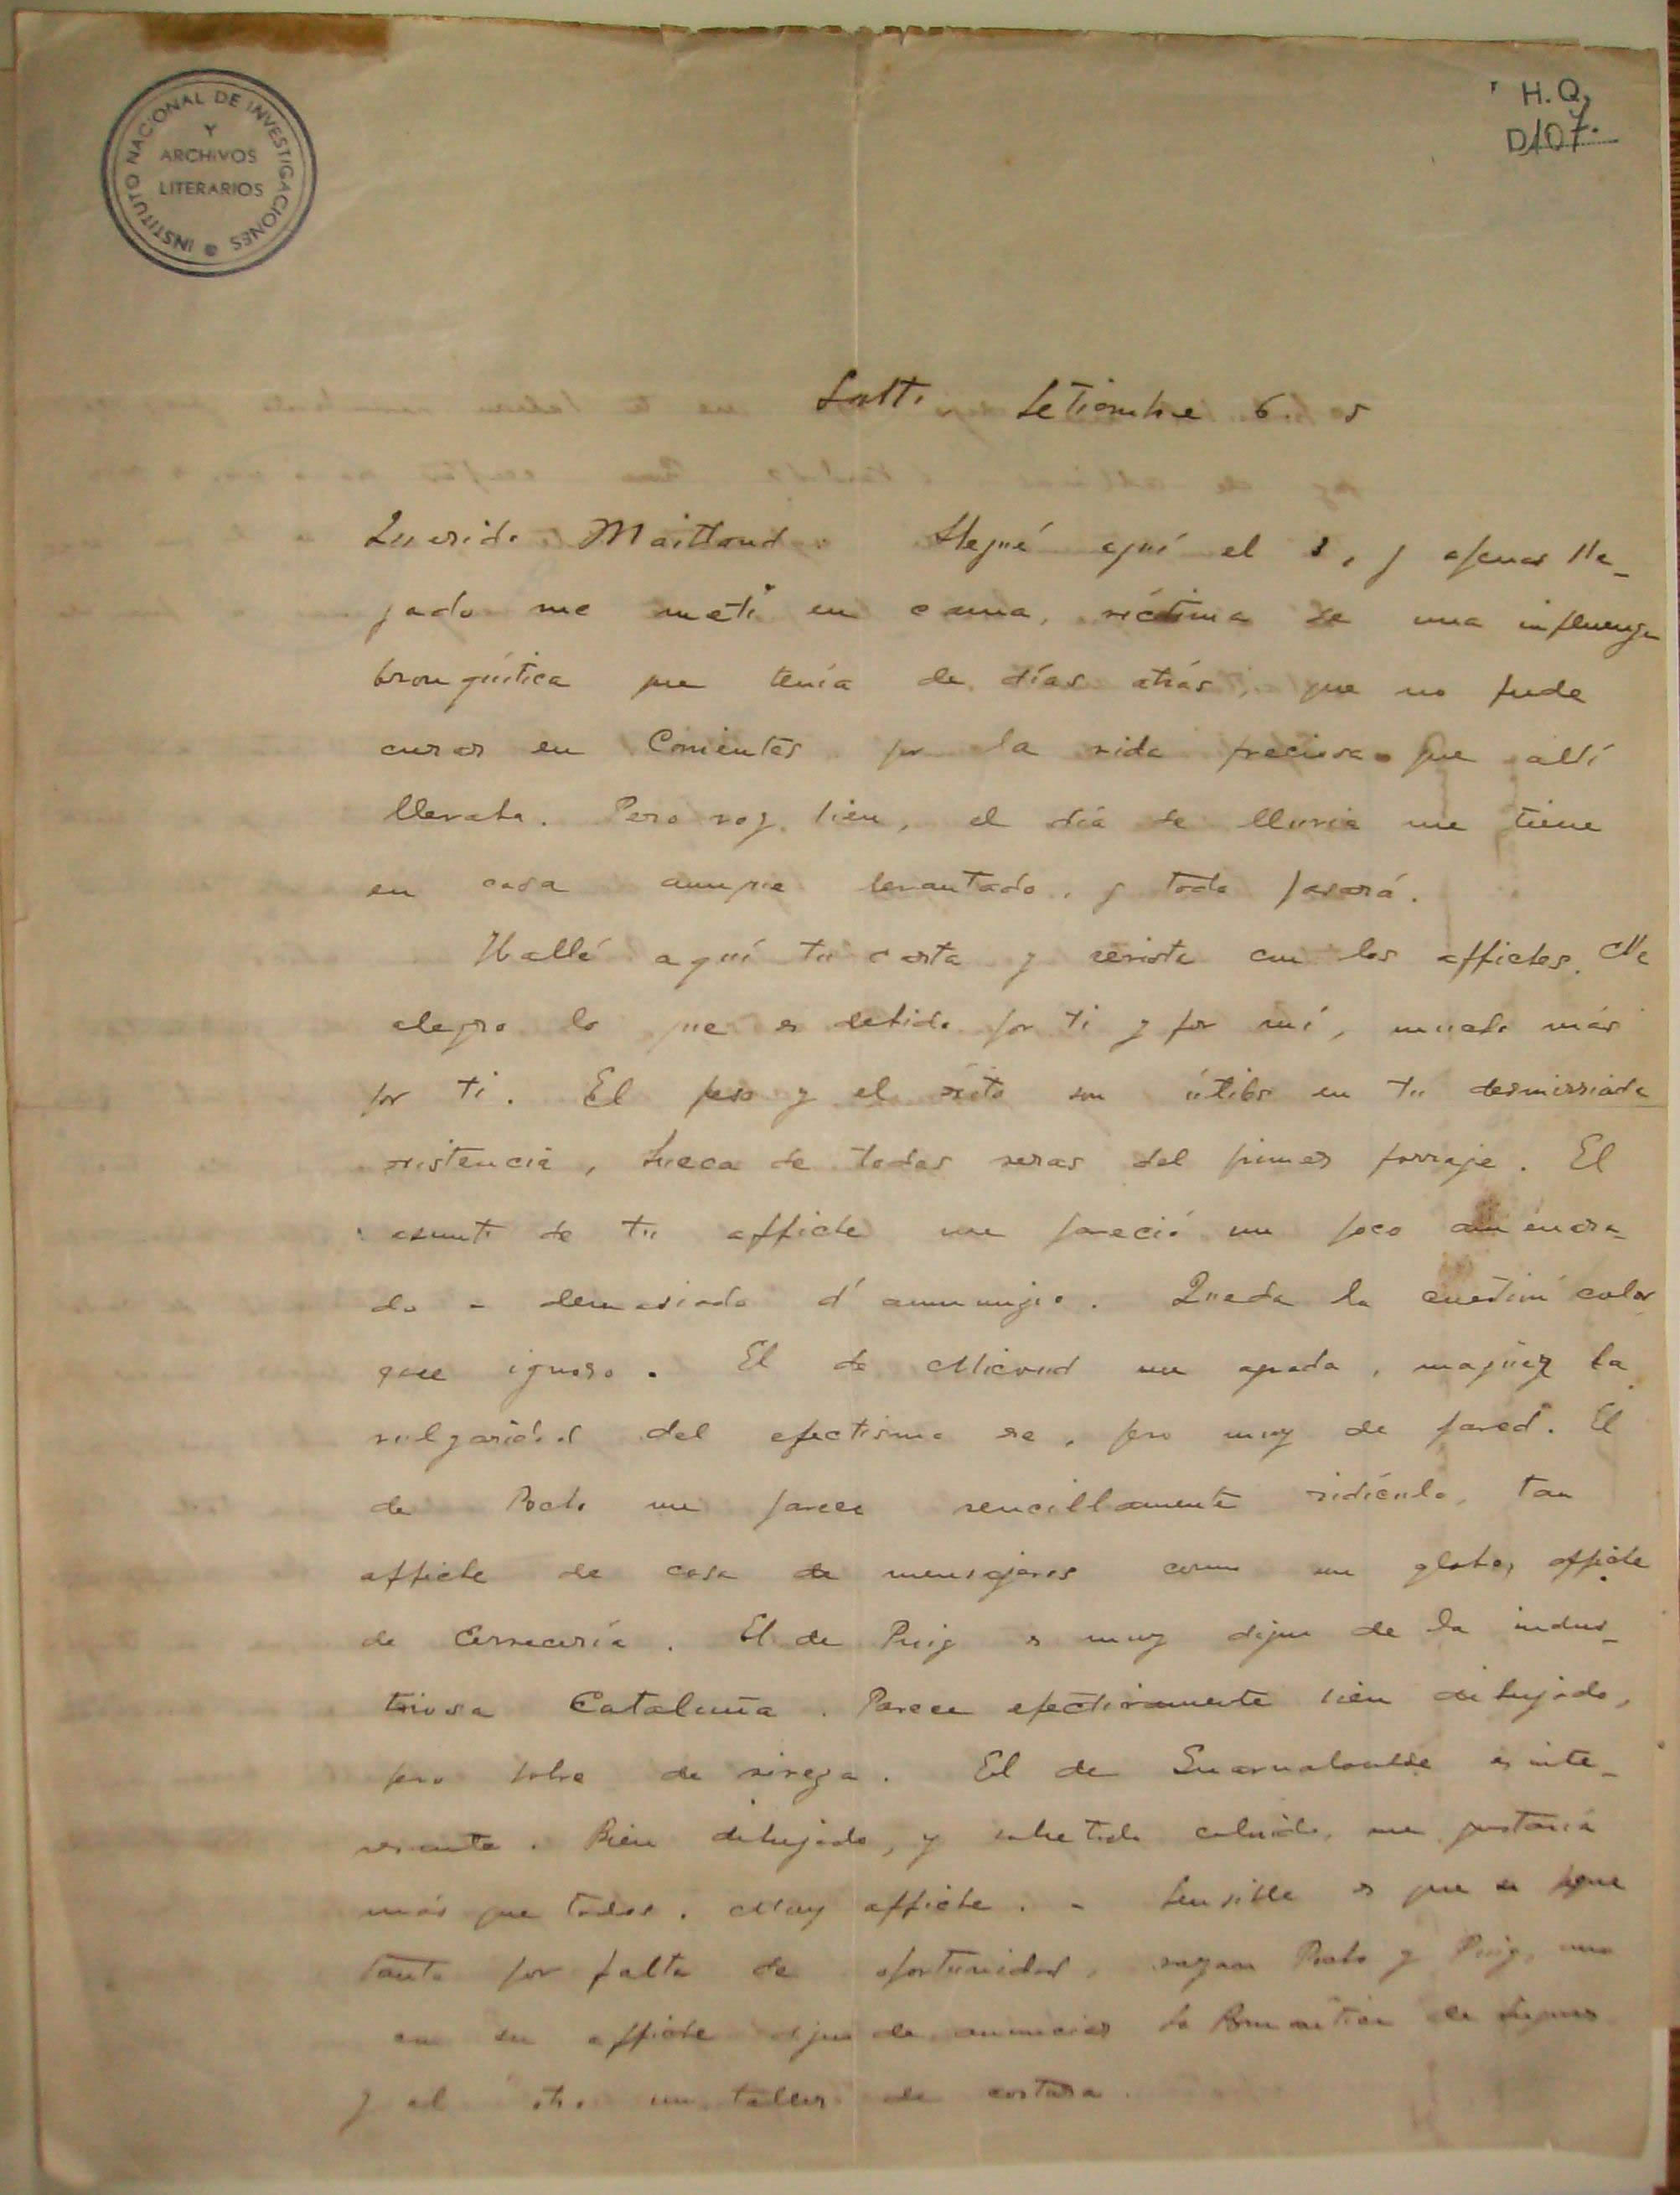 INSTITUTO NACIONAL DE INVESTIGACIONES
Y
ARCHIVOS
LITERARIOS
H.Q.
D107.
Salto Setiembre 6. 5
Querido Maitland: Llegué aquí el , y apenas lle-
gado me metí en cama, víctima de una influenza
bronquítica que tenía de días atrás, que no pude
curar en Corrientes por la vida preciosa que allí
llevaba. Pero voy bien, el día de lluvia me tiene
en casa aunque levantado, y todo pasará.
Hallé aquí tu carta y revista con los affiches. Me
alegro lo que es debido por ti y por mí, mucho más
por ti. El peso y el éxito son útiles en tu desmirriada
existencia, hueca de todas veras del primer forraje. El
asunto de tu affiche me pareció un poco amanera-
do - demasiado d'annunzio. Queda la cuestión color
que ignoro. El de me agrada, magüer la
vulgaridad del efectismo se, pero muy de pared. El
de me parece sencillamente ridículo, tan
affiche de casa de mensajeros como un affiche
de Cervecería. El de Puig es muy digno de la indus-
triosa Cataluña. Parece efectivamente bien dibujado,
pero sobre de . El de es inte-
resante. Bien dibujado, y sobre todo colorido, me gustaría
más que todos. Muy affiche. - Sensible es que se
tanto por falta de oportunidad, vayan y Puig, uno
con su affiche digno de anunciar la de
y el otro un taller de costura.